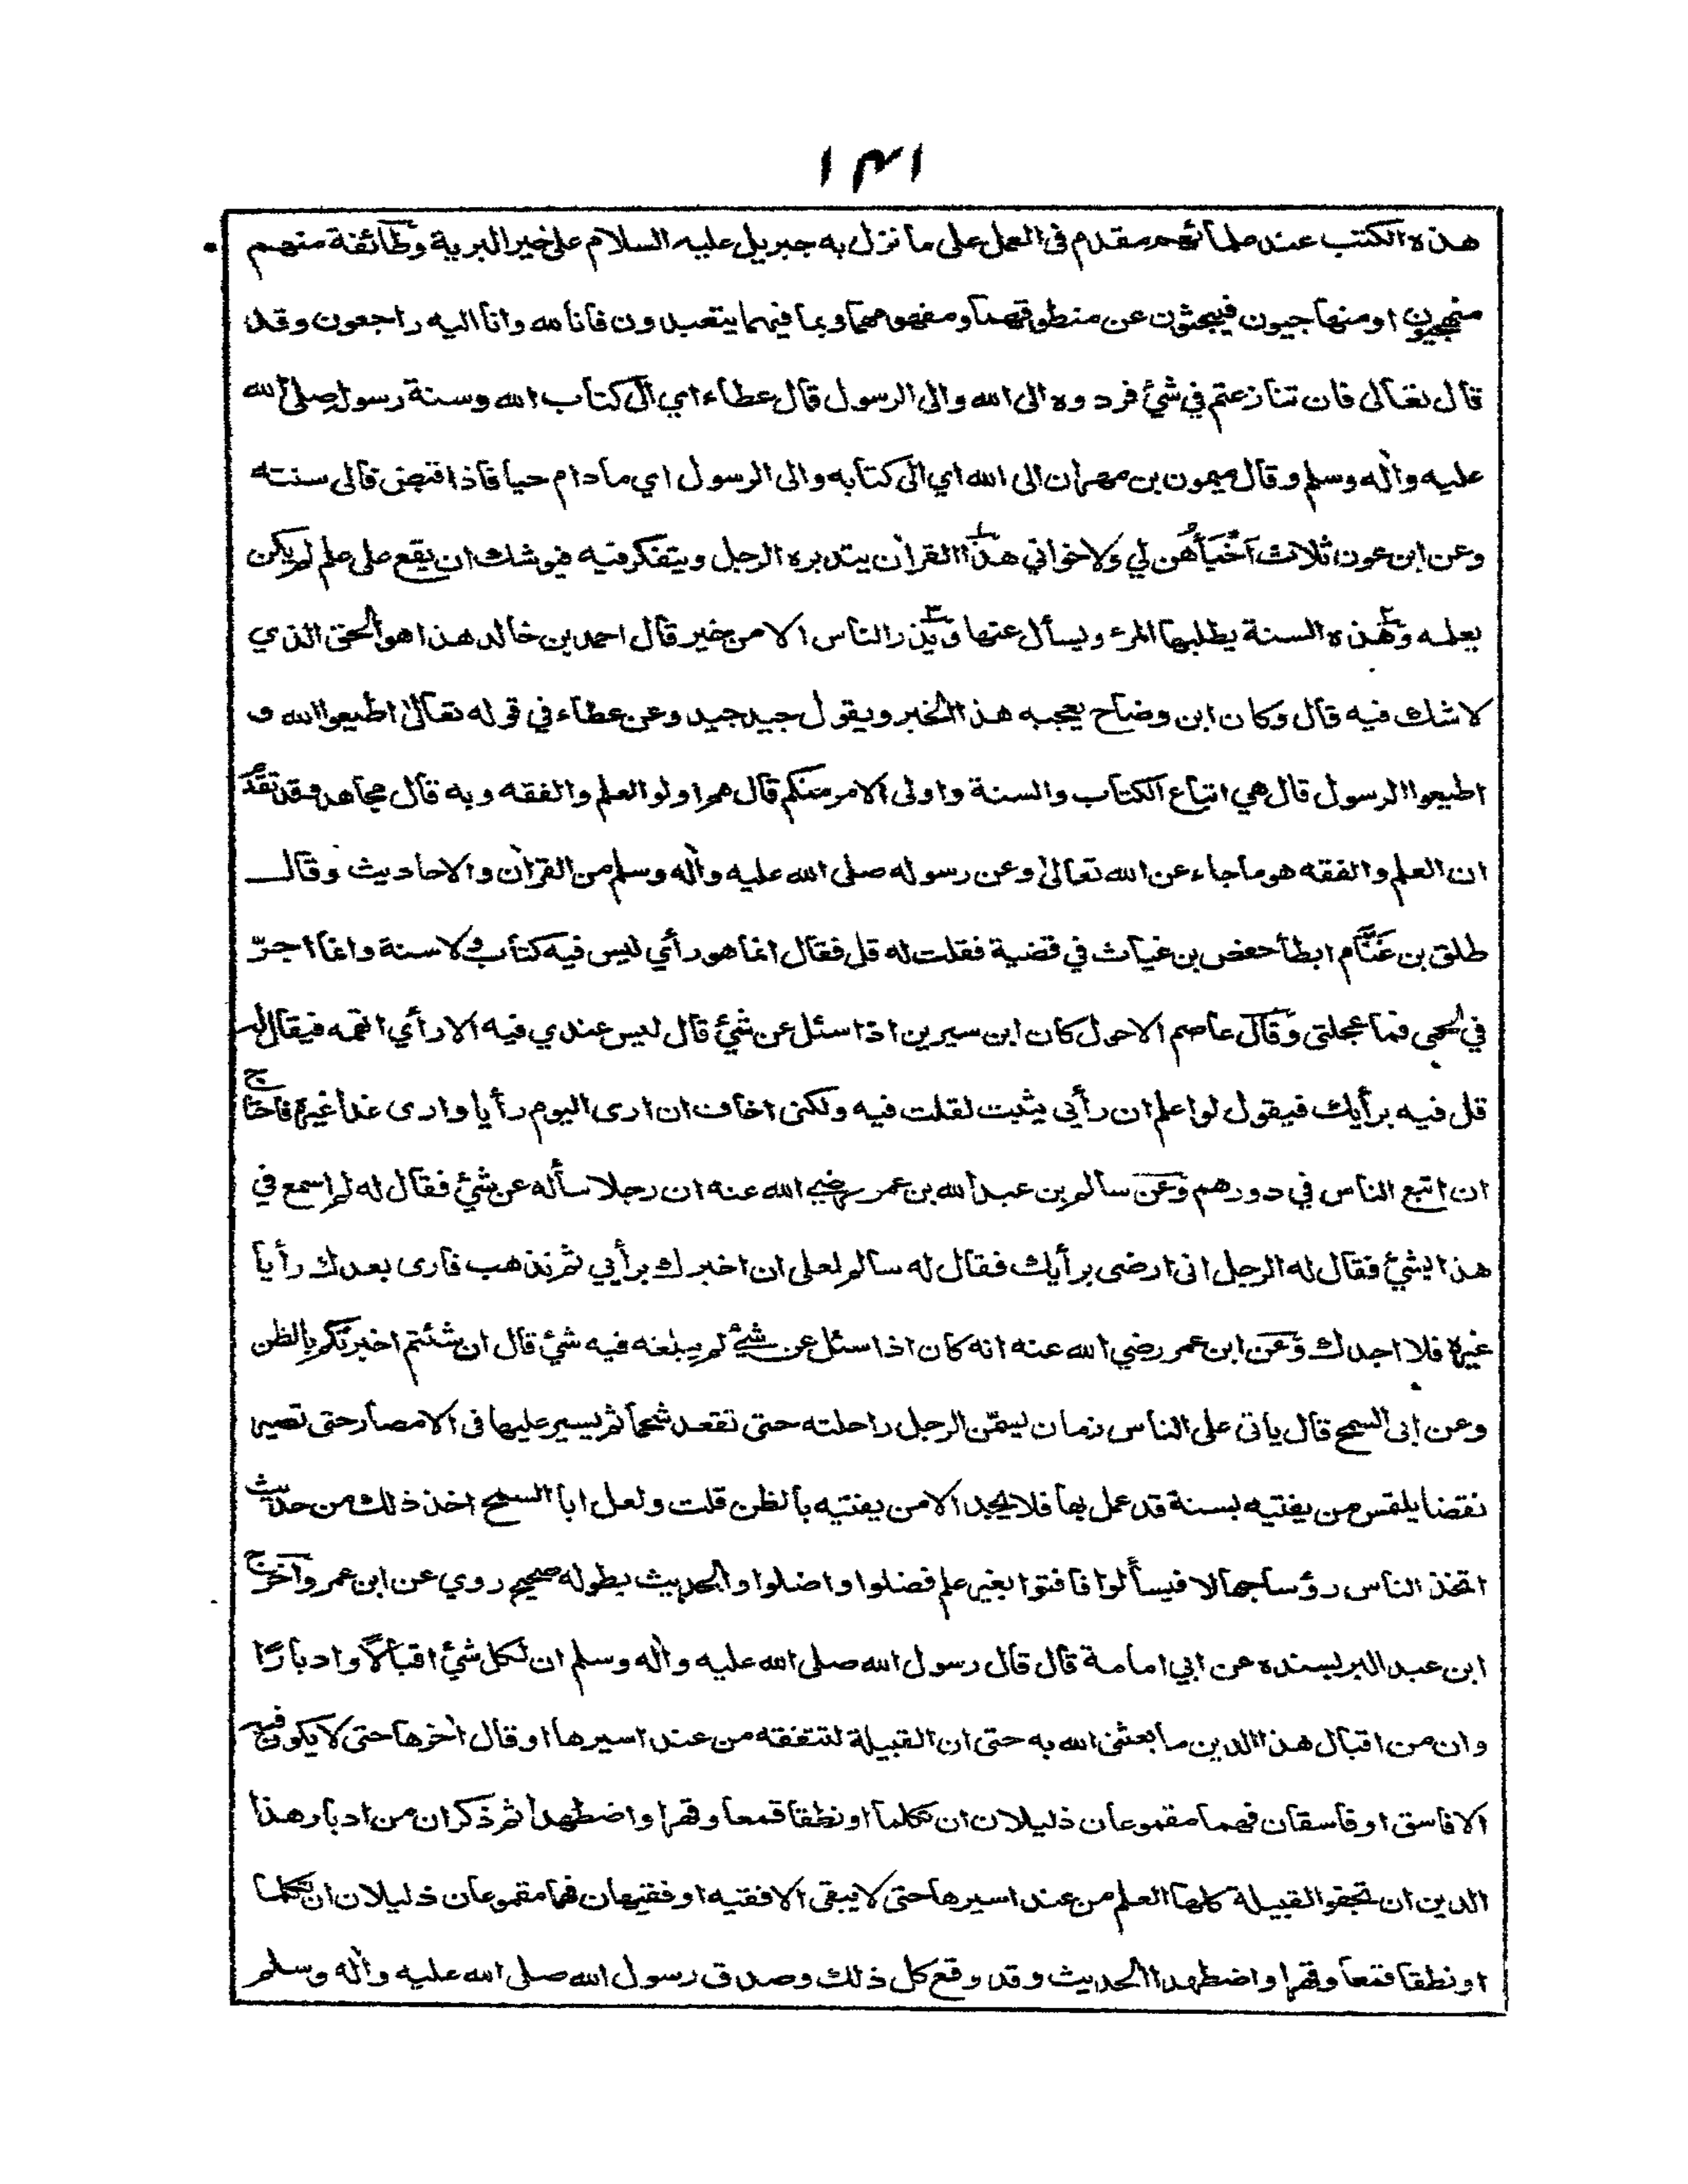 ١٣١
هذه الكتب عند علمائهم مقدم في العمل على ما نزل به جبريل عليه السلام على خير البرية وطائفة منهم
منهجيون او منهاجيون فيبحثون عن منطوقهما ومفهومهما وبما فيهما يتعبدون فانا لله وانا اليه راجعون وقد
قال تعالى فان تنازعتم في شئ فردوه الى الله والى الرسول قال عطاء اي الى كتاب الله وسنة رسول صلى الله
عليه واٰله وسلم وقال ميمون بن مهران الى الله اي الى كتابه والى الرسول اي مادام حيا فاذا قبض فالى سنته
وعن ابن عون ثلاث اَحَبُّهُن لي ولاخواني هذا القراٰن يتدبره الرجل ويتفكر فيه فيوشك ان يقع على علم لم يكن
يعلمه وهذه السنة يطلبها المرء ويسأل عنها ويذر الناس الا من خير قال احمد بن خالد هذا هو الحق الذي
لا شك فيه قال وكان ابن وضاح يعجبه هذا الخبر ويقول جيد جيد وعن عطاء في قوله تعالىٰ اطيعوا الله و
اطيعوا الرسول قال هي اتباع الكتاب والسنة واولى الامر منكم قال هم اولو العلم والفقه وبه قال مجاهد وقد تقدم
ان العلم والفقه هو ما جاء عن الله تعالىٰ وعن رسوله صلى الله عليه واٰله وسلم من القراٰن والاحاديث وقال
طلق بن غَنَّام ابطأ حفص بن غياث في قضية فقلت له قل فقال انما هو رأي ليس فيه كتاب ولا سنة وانما احزّ
في لحمى فما عجلتى وقال عاصم الاحول كان ابن سيرين اذا سئل عن شئ قال ليس عندي فيه الا رأي اتهمه فيقال له
قل فيه برأيك فيقول لو اعلم ان رأيي يثبت لقلت فيه ولكنى اخاف ان ارى اليوم رأيا وارى غدا غيره فاحتاج
ان اتبع الناس في دورهم وعن سالم بن عبد الله بن عمر رضي الله عنه ان رجلا سأله عن شئ فقال له لم اسمع في
هذا بشئ فقال له الرجل انى ارضى برأيك فقال له سالم لعلى ان اخبرك برأيي ثم تذهب فارى بعدك رأيا
غيره فلا اجدك وعن ابن عمر رضي الله عنه انه كان اذا سئل عن شئ لم يبلغه فيه شئ قال ان شئتم اخبرتكم بالظن
وعن ابى السمح قال ياتى على الناس زمان يسمّن الرجل راحلته حتى تقعد شحما ثم يسير عليها فى الامصار حتى تصير
نقضا يلتمس من يفتيه بسنة قد عمل بها فلا يجد الا من يفتيه بالظن قلت ولعل ابا السمح اخذ ذلك من حديث
اتخذ الناس رؤسا جهالا فيسألوا فافتوا بغير علم فضلوا واضلوا والحديث بطوله صحيح روي عن ابن عمر واخرج
ابن عبد البر بسنده عن ابي امامة قال قال رسول الله صلى الله عليه واٰله وسلم ان لكل شئ اقبالًا وادبارًا
وان من اقبال هذا الدين ما بعثنى الله به حتى ان القبيلة لتتفقه من عند اسيرها او قال اٰخرها حتى لا يكون فيها
الا فاسق او فاسقان فهما مقموعان ذليلان ان تكلما او نطقا قمعا وقهرا واضطهدا ثم ذكر ان من ادبار هذا
الدين ان تجفو القبيلة كلها العلم من عند اسيرها حتى لا يبقى الا فقيه او فقيهان فهما مقموعان ذليلان ان تكلما
او نطقا قمعا وقهرا واضطهدا الحديث وقد وقع كل ذلك وصدق رسول الله صلى الله عليه واٰله وسلم